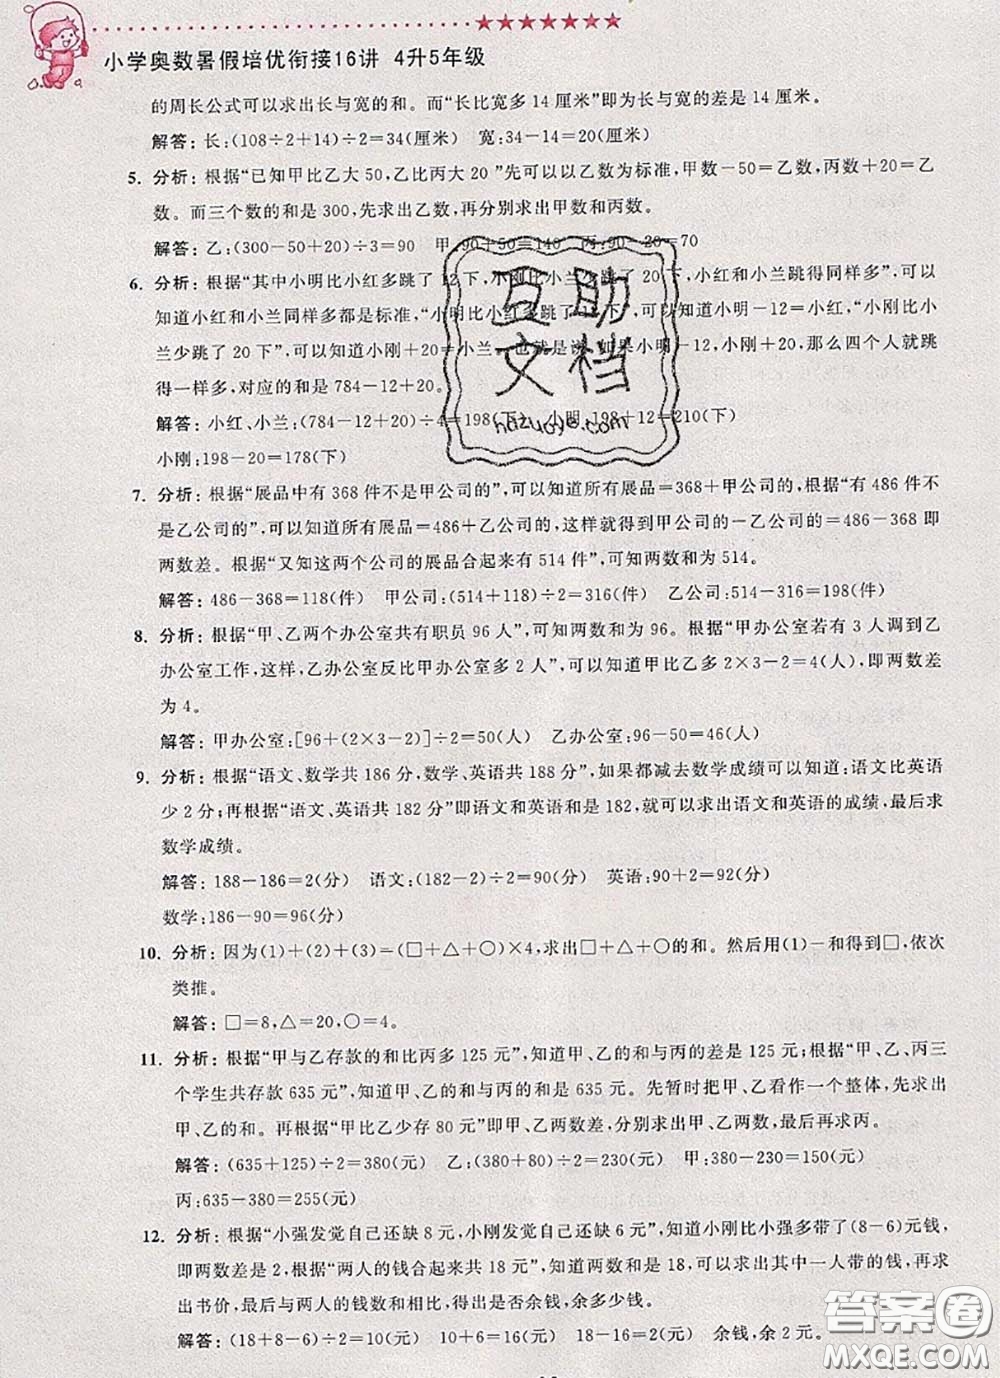 小学奥数暑假培优衔接16讲 4升5年级
的周长公式可以求出长与宽的和。而“长比宽多14厘米”即为长与宽的差是14厘米。
解答:长:(108÷2+14)÷2=34(厘米) 宽:34-14=20(厘米)
5. 分析:根据“已知甲比乙大50,乙比丙大20”先可以以乙数为标准,甲数-50=乙数,丙数+20=乙
数。而三个数的和是300,先求出乙数,再分别求出甲数和丙数。
解答:乙:(300-50+20)÷3=90 甲:90+50=140 丙:90-20=70
6. 分析:根据“其中小明比小红多跳了12下,小刚比小兰少跳了20下,小红和小兰跳得同样多”,可以
知道小红和小兰同样多都是标准,“小明比小红多跳了12下”,可以知道小明-12=小红,“小刚比小
兰少跳了20下”,可以知道小刚+20=小兰,也就是说如果小明-12,小刚+20,那么四个人就跳
得一样多,对应的和是784-12+20。
解答:小红、小兰:(784-12+20)÷4=198(下) 小明:198+12=210(下)
小刚:198-20=178(下)
7. 分析:根据“展品中有368件不是甲公司的”,可以知道所有展品=368+甲公司的,根据“有486件不
是乙公司的”,可以知道所有展品=486+乙公司的,这样就得到甲公司的-乙公司的=486-368即
两数差。根据“又知这两个公司的展品合起来有514件”,可知两数和为514。
解答:486-368=118(件) 甲公司:(514+118)÷2=316(件) 乙公司:514-316=198(件)
8. 分析:根据“甲、乙两个办公室共有职员96人”,可知两数和为96。根据“甲办公室若有3人调到乙
办公室工作,这样,乙办公室反比甲办公室多2人”,可以知道甲比乙多2×3-2=4(人),即两数差
为4。
解答:甲办公室:[96+(2×3-2)]÷2=50(人) 乙办公室:96-50=46(人)
9. 分析:根据“语文、数学共186分,数学、英语共188分”,如果都减去数学成绩可以知道:语文比英语
少2分;再根据“语文、英语共182分”即语文和英语和是182,就可以求出语文和英语的成绩,最后求
数学成绩。
解答:188-186=2(分) 语文:(182-2)÷2=90(分) 英语:90+2=92(分)
数学:186-90=96(分)
10. 分析:因为(1)+(2)+(3)=(□+△+○)×4,求出□+△+○的和。然后用(1)-和得到□,依次
类推。
解答:□=8,△=20,○=4。
11. 分析:根据“甲与乙存款的和比丙多125元”,知道甲、乙的和与丙的差是125元;根据“甲、乙、丙三
个学生共存款635元”,知道甲、乙的和与丙的和是635元。先暂时把甲、乙看作一个整体,先求出
甲、乙的和。再根据“甲比乙少存80元”即甲、乙两数差,分别求出甲、乙两数,最后求出丙。
解答:(635+125)÷2=380(元) 乙:(380+80)÷2=230(元) 甲:380-230=150(元)
丙:635-380=255(元)
12. 分析:根据“小强发觉自己还缺8元,小刚发觉自己还缺6元”,知道小刚比小强多带了(8-6)元钱,
即两数差是2,根据“两人的钱合起来共18元”,知道两数和是18,可以求出其中一人带的钱,从而求
出书价,最后与两人的钱数和相比,得出是否余钱,余多少钱。
解答:(18+8-6)÷2=10(元) 10+6=16(元) 18-16=2(元) 余钱,余2元。
互助
文档
hdzuoye.com
答案圈
MXQE.COM